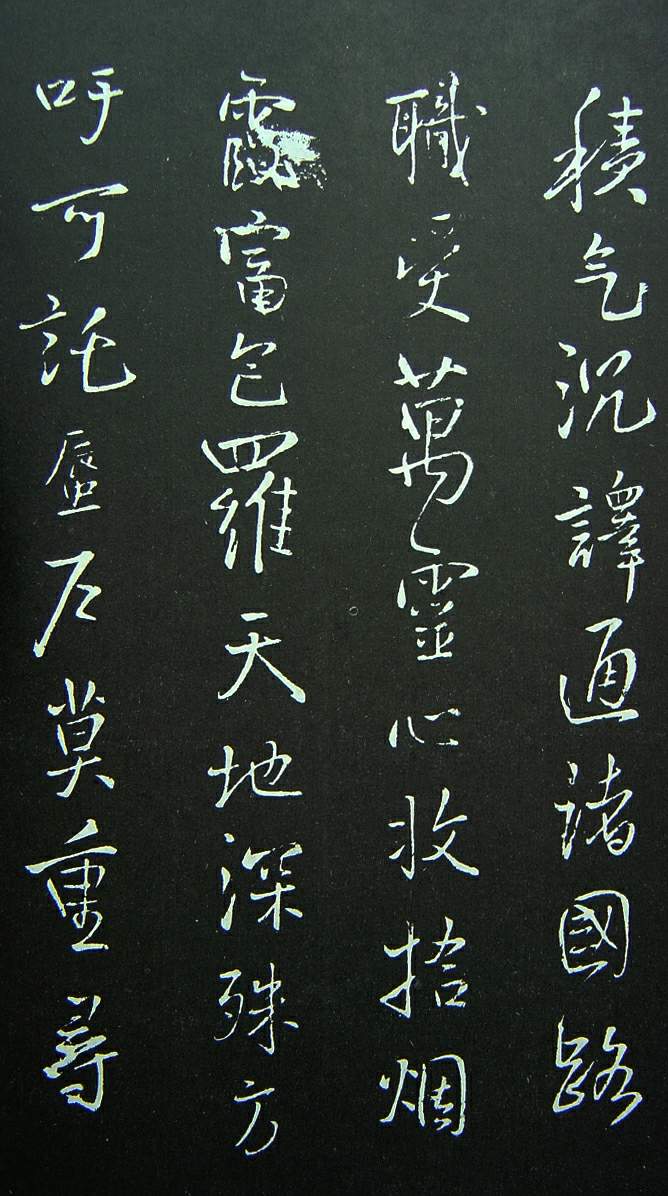 積气沉譯通諸國路
職受萬靈心收拾烟
霞富包羅天地深殊方
吁可託蜃尺莫重尋